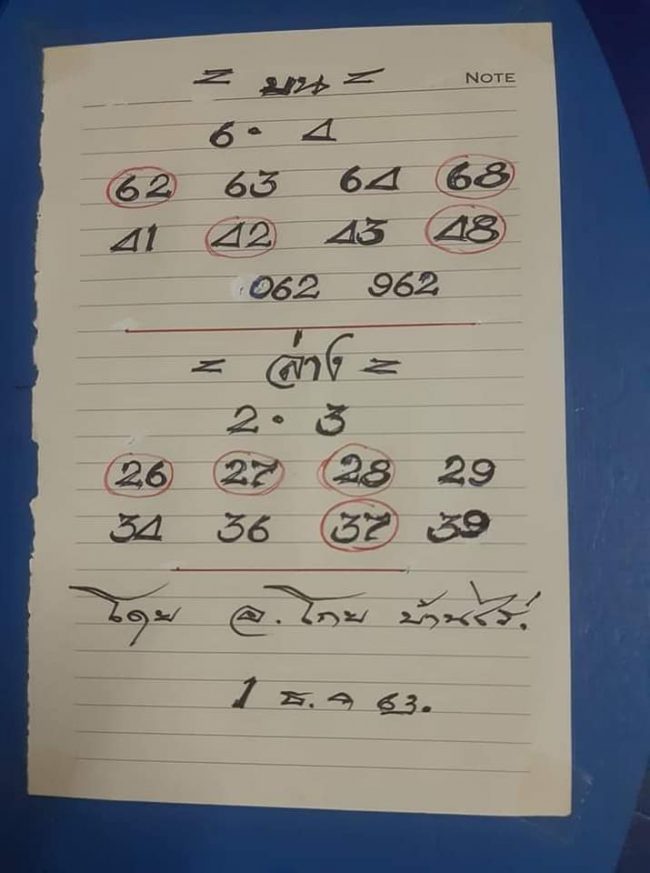 NOTE
= บน =
6 · 4
62 63 64 68
41 42 43 48
062 962
= ล่าง =
2 · 3
26 27 28 29
34 36 37 39
โดย อ. โกย บ้านไร่.
1 ธ.ค 63.